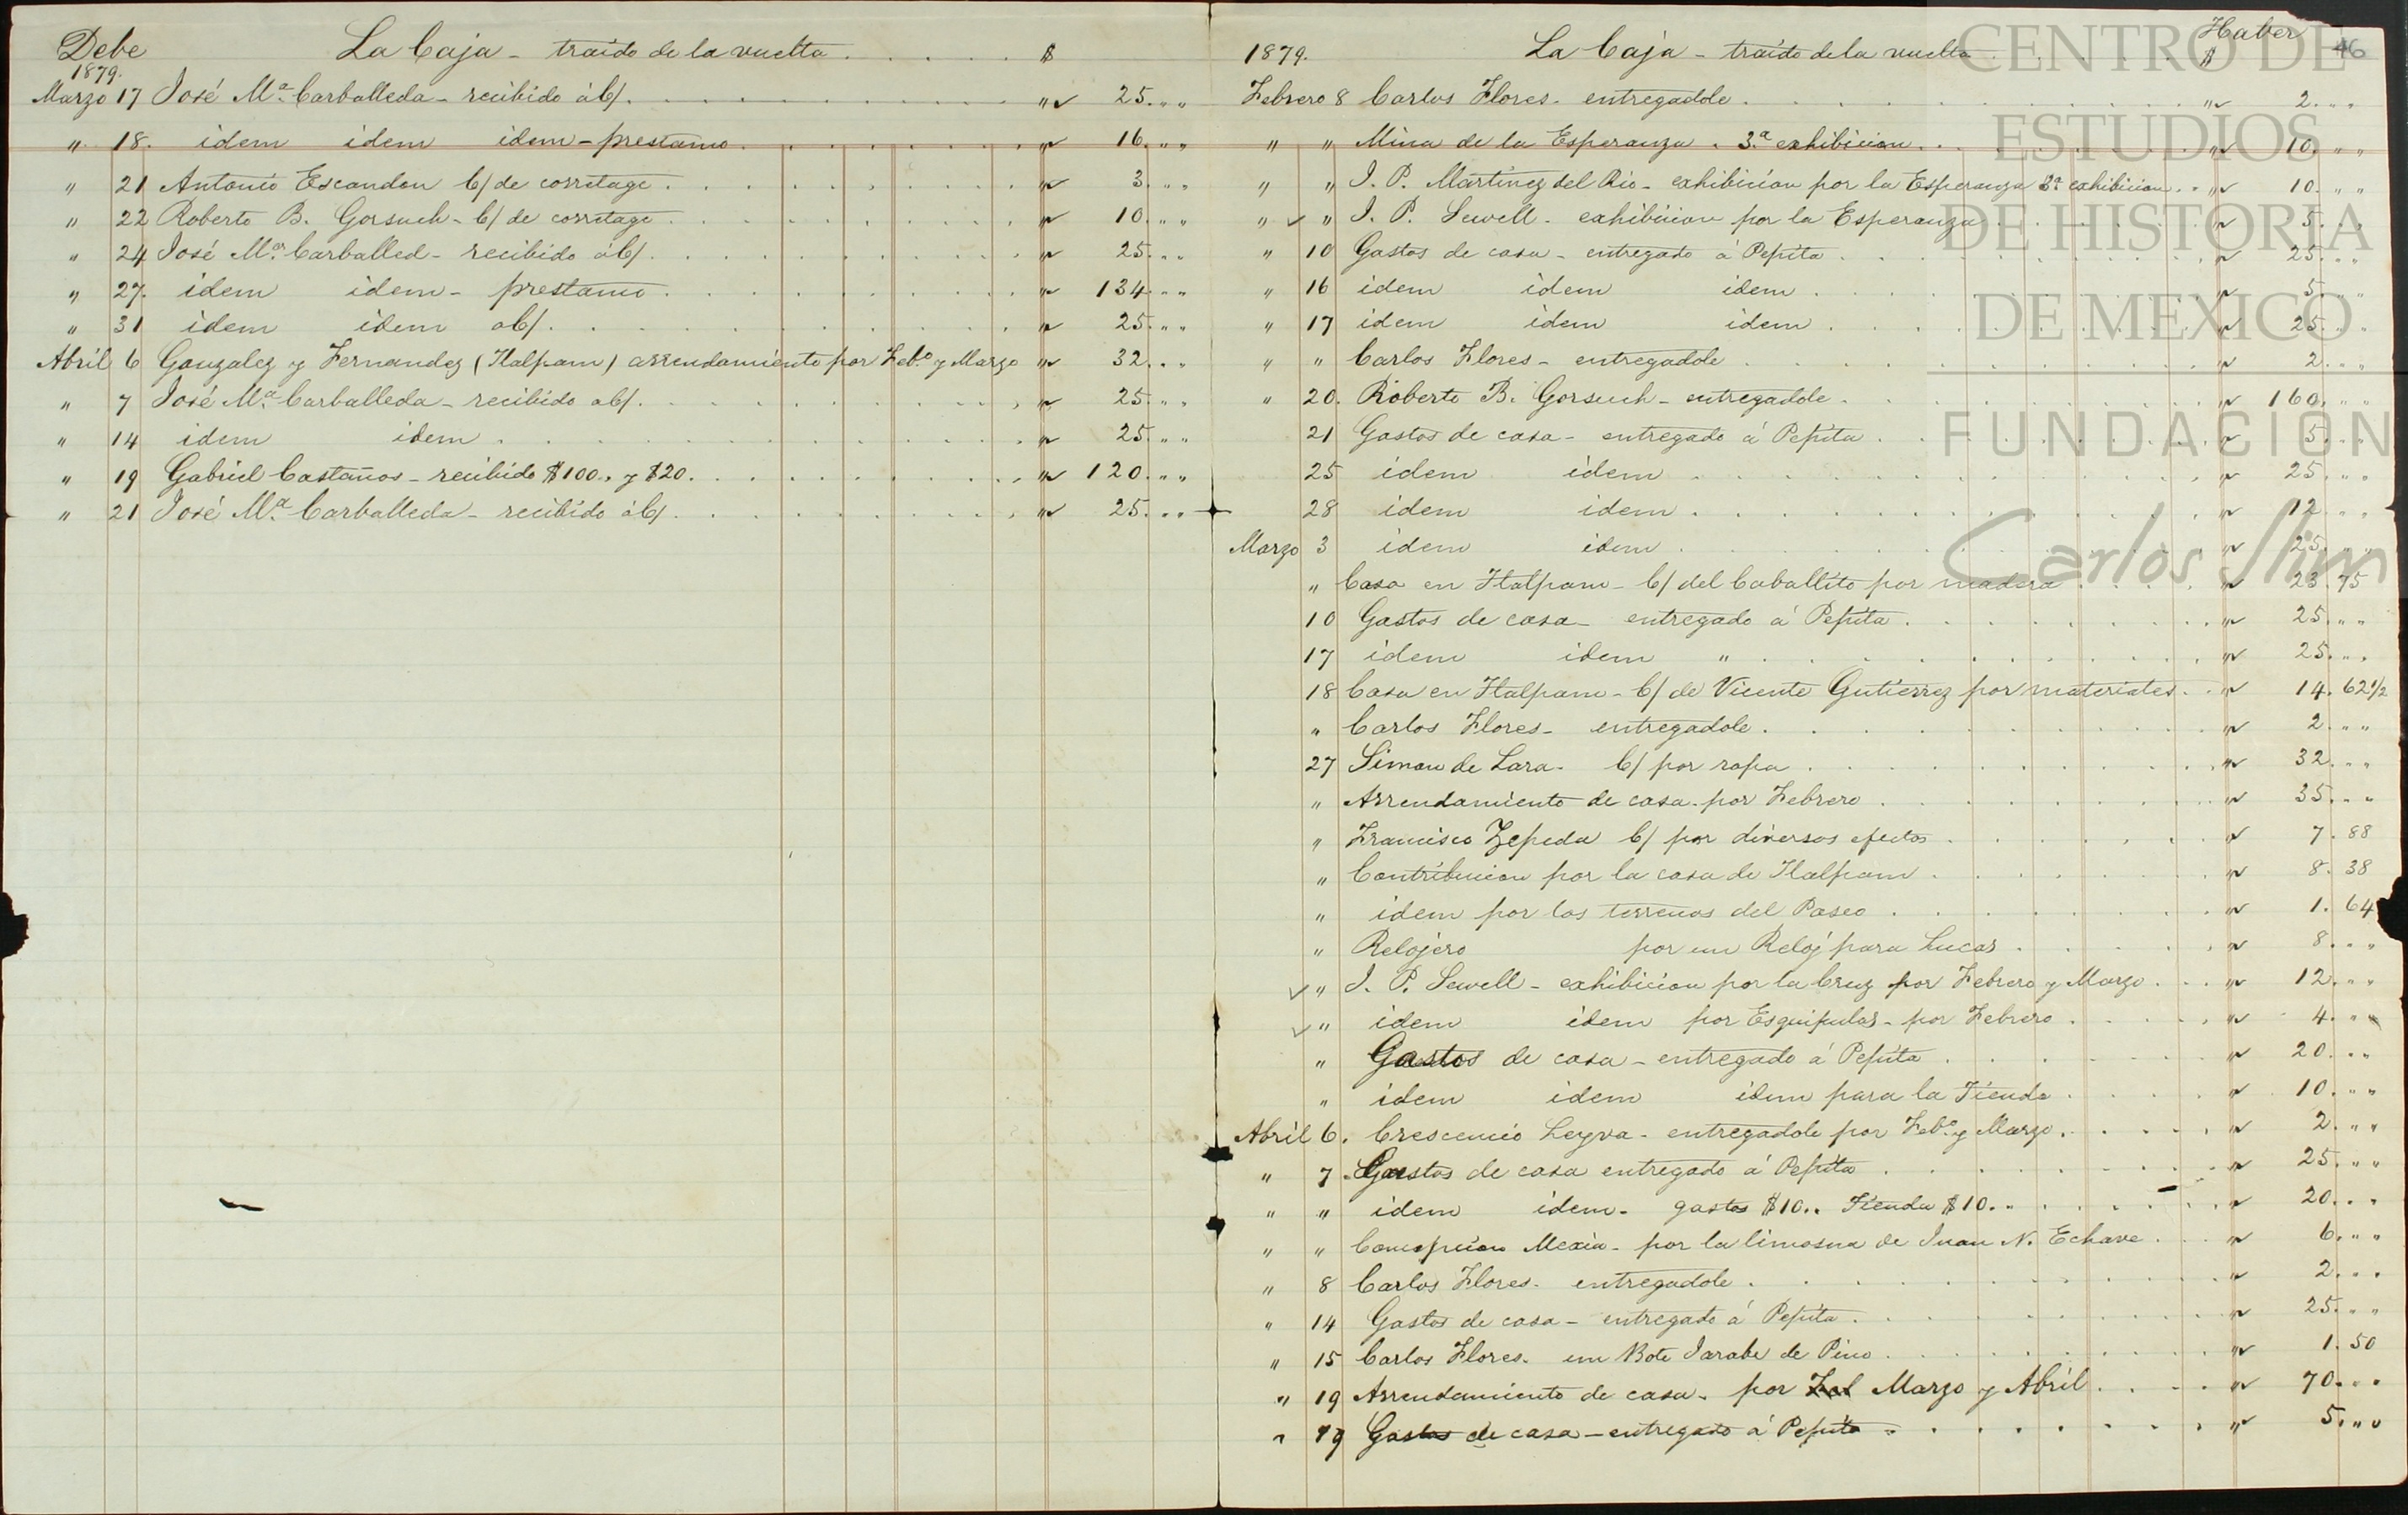 Debe La Caja - traido de la vuelta . . . . . $
1879.
Marzo 17 José Ma. Carballeda - recibido á c/ . . . " 25. " "
" 18. idem idem idem - prestamo . . . " 16. " "
" 21 Antonio Escandon c/ de corretage . . . " 3. " "
" 22 Roberto B. Gorsuch - c/ de corretage . . . " 10. " "
" 24 José Ma. Carballed - recibido á c/ . . . " 25. " "
" 27. idem idem - prestamo . . . " 134. " "
" 31 idem idem a c/ . . . " 25. " "
Abril 6 Gonzalez y Fernandez (Tlalpam) arrendamiento por Feb.o y Marzo " 32. " "
" 7 José Ma. Carballeda - recibido a c/ . . . " 25. " "
" 14 idem idem . . . " 25. " "
" 19 Gabriel Castaños - recibido $100.. y $20. . . . " 120. " "
" 21 José Ma. Carballeda - recibido á c/ . . . " 25. " "
Haber 46
1879. La Caja - traido de la vuelta . . . $
Febrero 8 Carlos Flores - entregadole . . . " 2. " "
" " Mina de la Esperanza . 3.a exhibicion . . . " 10. " "
" " J. P. Martinez del Rio - exhibicion por la Esperanza 3a exhibicion . . " 10. " "
" " J. P. Sewell - exhibicion por la Esperanza . . . " 5. " "
" 10 Gastos de casa - entregado á Pepita . . . " 25. " "
" 16 idem idem idem . . . " 5. " "
" 17 idem idem idem . . . " 25. " "
" " Carlos Flores - entregadole . . . " 2. " "
" 20. Roberto B. Gorsuch - entregadole . . . " 160. " "
21 Gastos de casa - entregado á Pepita . . . " 5. " "
25 idem idem . . . " 25. " "
28 idem idem . . . " 12. " "
Marzo 3 idem idem . . . " 25. " "
" Casa en Tlalpam - c/ del Caballito por madera . . . " 23. 75
10 Gastos de casa - entregado á Pepita . . . " 25. " "
17 idem idem " . . . " 25. " "
18 Casa en Tlalpam - c/ de Vicente Gutierrez por materiales . . " 14. 62 1/2
" Carlos Flores - entregadole . . . " 2. " "
27 Simon de Lara - c/ por ropa . . . " 32. " "
" Arrendamiento de casa - por Febrero . . . " 35. " "
" Francisco Zepeda c/ por diversos efectos . . . " 7. 88
" Contribucion por la casa de Tlalpam . . . " 8. 38
" idem por los terrenos del Paseo . . . " 1. 64
" Relojero por un Reloj para Lucas . . . " 8. " "
" J. P. Sewell - exhibicion por la Cruz por Febrero y Marzo . . . " 12. " "
" idem idem por Esquipulas - por Febrero . . . " 4. " "
" Gastos de casa - entregado á Pepita . . . " 20. " "
" idem idem idem para la Tienda . . . " 10. " "
Abril 6. Crescencio Leyva - entregadole por Feb.o y Marzo . . . " 2. " "
" 7 Gastos de casa entregado á Pepita . . . " 25. " "
" " idem idem - gastos $10.. Tienda $10.. . . . " 20. " "
" " Concepcion Mexia - por la limosna de Juan N. Echave . . . " 6. " "
" 8 Carlos Flores - entregadole . . . " 2. " "
" 14 Gastos de casa - entregado á Pepita . . . " 25. " "
" 15 Carlos Flores - un Bote Jarabe de Pino . . . " 1. 50
" 19 Arrendamiento de casa - por Feb Marzo y Abril . . . " 70. " "
" 19 Gastos de casa - entregado á Pepita . . . " 5. " "
CENTRO DE
ESTUDIOS
DE HISTORIA
DE MEXICO
FUNDACIÓN
Carlos Slim